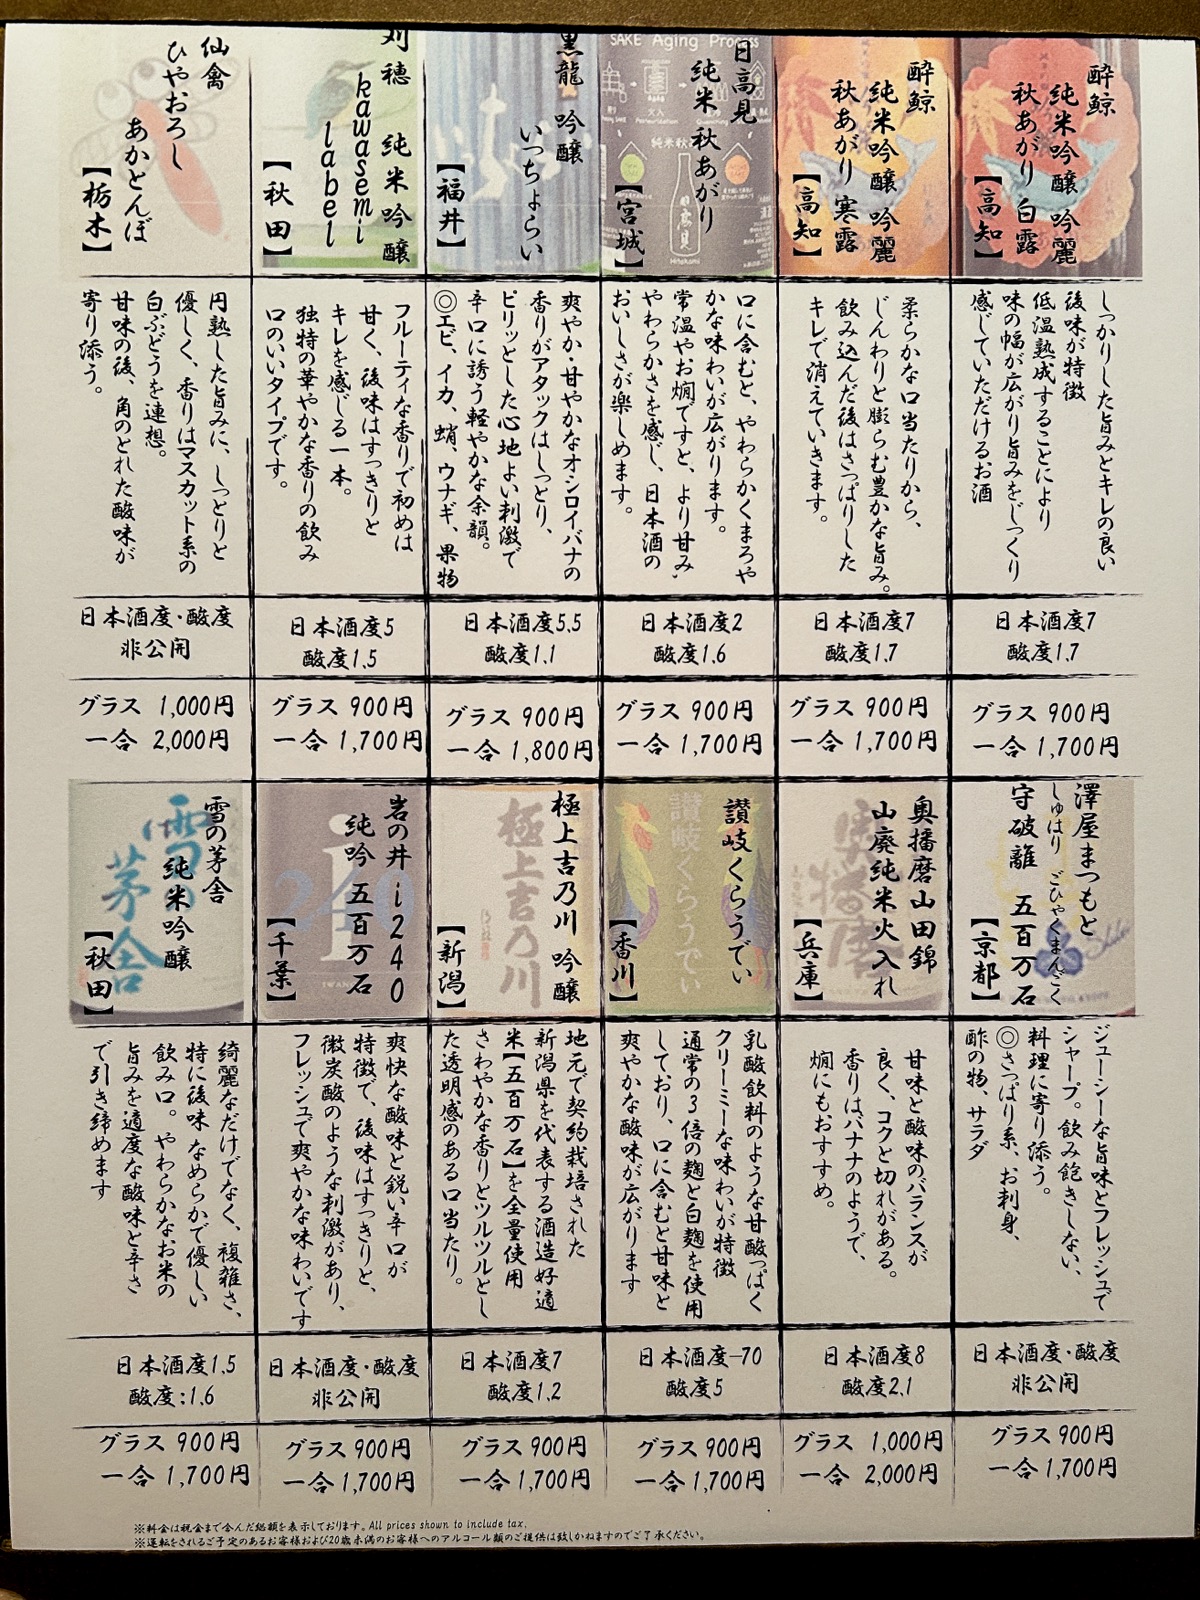 酔鯨
純米吟醸 吟麗
秋あがり 白露
【高知】
しっかりした旨みとキレの良い
後味が特徴
低温熟成することにより
味の幅が広がり旨みをじっくり
感じていただけるお酒
日本酒度7
酸度1.7
グラス 900円
一合 1,700円
酔鯨
純米吟醸 吟麗
秋あがり 寒露
【高知】
柔らかな口当たりから、
じんわりと膨らむ豊かな旨み。
飲み込んだ後はさっぱりした
キレで消えていきます。
日本酒度7
酸度1.7
グラス 900円
一合 1,700円
SAKE Aging Process
日高見
純米 秋あがり
【宮城】
Hitakami
口に含むと、やわらかくまろや
かな味わいが広がります。
常温やお燗ですと、より甘み、
やわらかさを感じ、日本酒の
おいしさが楽しめます。
日本酒度2
酸度1.6
グラス 900円
一合 1,700円
黒龍 吟醸
いっちょらい
【福井】
爽やか・甘やかなオシロイバナの
香りがアタックはしっとり、
ピリッとした心地よい刺激で
辛口に誘う軽やかな余韻。
◎エビ、イカ、蛸、ウナギ、果物
日本酒度5.5
酸度1.1
グラス 900円
一合 1,800円
刈穂 純米吟醸
kawasemi
label
【秋田】
フルーティな香りで初めは
甘く、後味はすっきりと
キレを感じる一本。
独特の華やかな香りの飲み
口のいいタイプです。
日本酒度5
酸度1.5
グラス 900円
一合 1,700円
仙禽
ひやおろし
あかとんぼ
【栃木】
円熟した旨みに、しっとりと
優しく、香りはマスカット系の
白ぶどうを連想。
甘味の後、角のとれた酸味が
寄り添う。
日本酒度・酸度
非公開
グラス 1,000円
一合 2,000円
澤屋まつもと
しゅはり ごひゃくまんごく
守破離 五百万石
【京都】
ジューシーな旨味とフレッシュで
シャープ。飲み飽きしない、
料理に寄り添う。
◎さっぱり系、お刺身、
酢の物、サラダ
日本酒度・酸度
非公開
グラス 900円
一合 1,700円
奥播磨山田錦
山廃純米火入れ
【兵庫】
甘味と酸味のバランスが
良く、コクと切れがある。
香りはバナナのようで、
燗にもおすすめ。
日本酒度8
酸度2.1
グラス 1,000円
一合 2,000円
讃岐くらうでぃ
【香川】
讃岐くらうでぃ
乳酸飲料のような甘酸っぱく
クリーミーな味わいが特徴
通常の3倍の麹と白麹を使用
しており、口に含むと甘味と
爽やかな酸味が広がります
日本酒度-70
酸度5
グラス 900円
一合 1,700円
極上吉乃川 吟醸
【新潟】
極上吉乃川
地元で契約栽培された
新潟県を代表する酒造好適
米【五百万石】を全量使用
さわやかな香りとツルツルとし
た透明感のある口当たり。
日本酒度7
酸度1.2
グラス 900円
一合 1,700円
岩の井 i240
純吟 五百万石
【千葉】
爽快な酸味と鋭い辛口が
特徴で、後味はすっきりと、
微炭酸のような刺激があり、
フレッシュで爽やかな味わいです
日本酒度・酸度
非公開
グラス 900円
一合 1,700円
雪の茅舎
純米吟醸
【秋田】
雪の茅舎
綺麗なだけでなく、複雑さ、
特に後味なめらかで優しい
飲み口。やわらかなお米の
旨みを適度な酸味と辛さ
で引き締めます
日本酒度1.5
酸度:1.6
グラス 900円
一合 1,700円
※料金は税金まで含んだ総額を表示しております。All prices shown to include tax.
※運転をされるご予定のあるお客様および20歳未満のお客様へのアルコール類のご提供は致しかねますのでご了承ください。